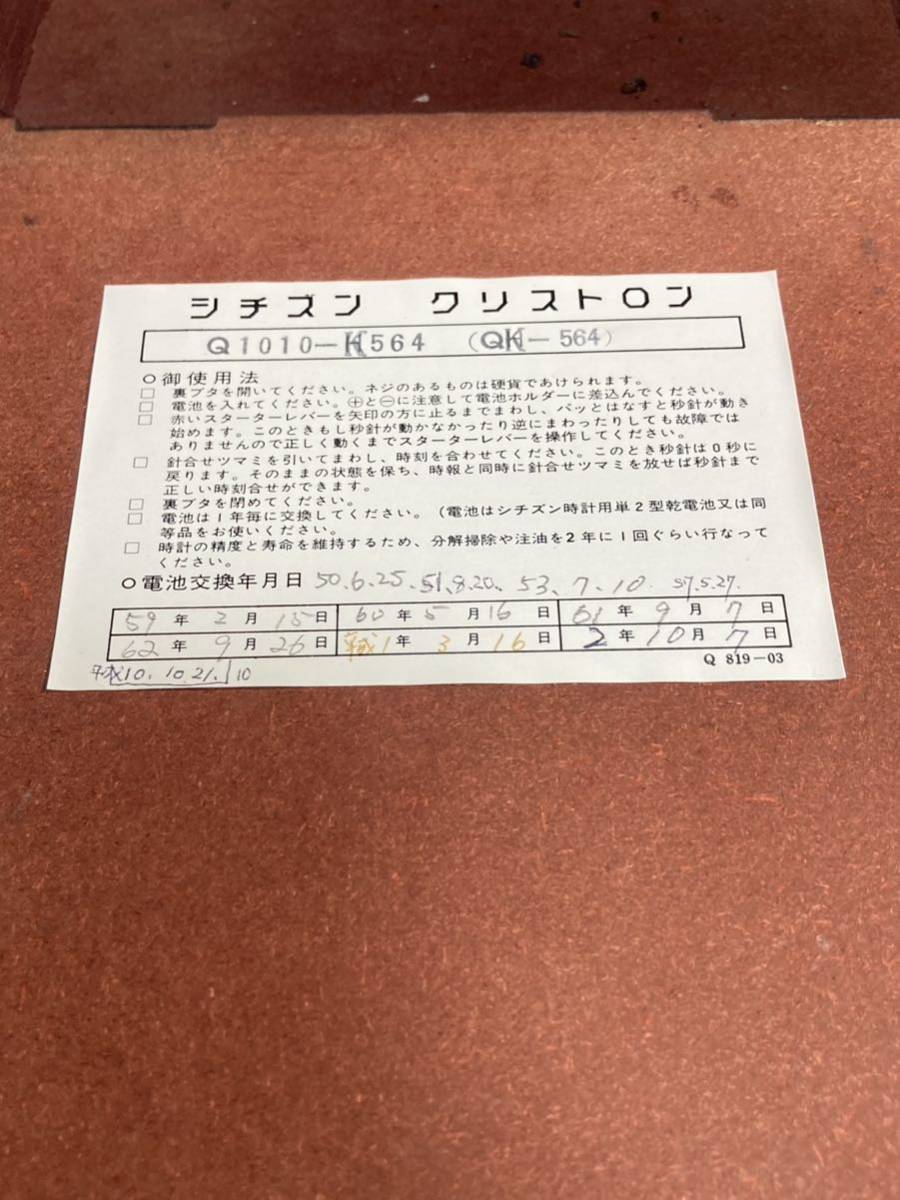 シチズン クリストロン
Q1010-H564 (QH-564)
○御使用法
□ 裏ブタを開いてください。ネジのあるものは硬貨であけられます。
□ 電池を入れてください。⊕と⊖に注意して電池ホルダーに差込んでください。
□ 赤いスターターレバーを矢印の方に止るまでまわし、パッとはなすと秒針が動き
始めます。このときもし秒針が動かなかったり逆にまわったりしても故障では
ありませんので正しく動くまでスターターレバーを操作してください。
□ 針合せツマミを引いてまわし、時刻を合わせてください。このとき秒針は0秒に
戻ります。そのままの状態を保ち、時報と同時に針合せツマミを放せば秒針まで
正しい時刻合せができます。
□ 裏ブタを閉めてください。
□ 電池は1年毎に交換してください。(電池はシチズン時計用単2型乾電池又は同
等品をお使いください。
□ 時計の精度と寿命を維持するため、分解掃除や注油を2年に1回ぐらい行なって
ください。
○電池交換年月日 50.6.25、51.8.20、53.7.10. 57.5.27.
59年 2月 15日 60年 5月 16日 61年 9月 7日
62年 9月 26日 1年 3月 16日 2年 10月 7日
Q 819-03
平成10.10.21. 10